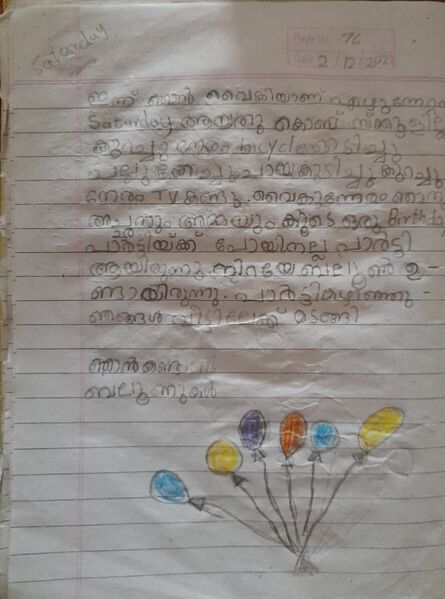 Saturday
Page No. 76
Date 2/12/202
ഇന്ന് ഞാൻ വൈകിയാണ് എഴുന്നേറ്റ
Saturday ആയതു കൊണ്ട് സ്ക്കൂളില്ല
കുറച്ചു നേരം bicycle ഓടിച്ചു
പല്ലു തേച്ചു ചായകുടിച്ചു കുറച്ചു
നേരം TV കണ്ടു. വൈകുന്നേരം ഞാനു
അച്ഛനും അമ്മയും കൂടെ ഒരു Birthda
പാർട്ടിയ്ക്ക് പോയി നല്ല പാർട്ടി
ആയിരുന്നു. നിറയേ ബലൂൺ ഉ-
ണ്ടായിരുന്നു. പാർട്ടികഴിഞ്ഞു -
ഞങ്ങൾ വീട്ടിലേക്ക് മടങ്ങി
ഞാൻ കണ്ട
ബലൂണുകൾ